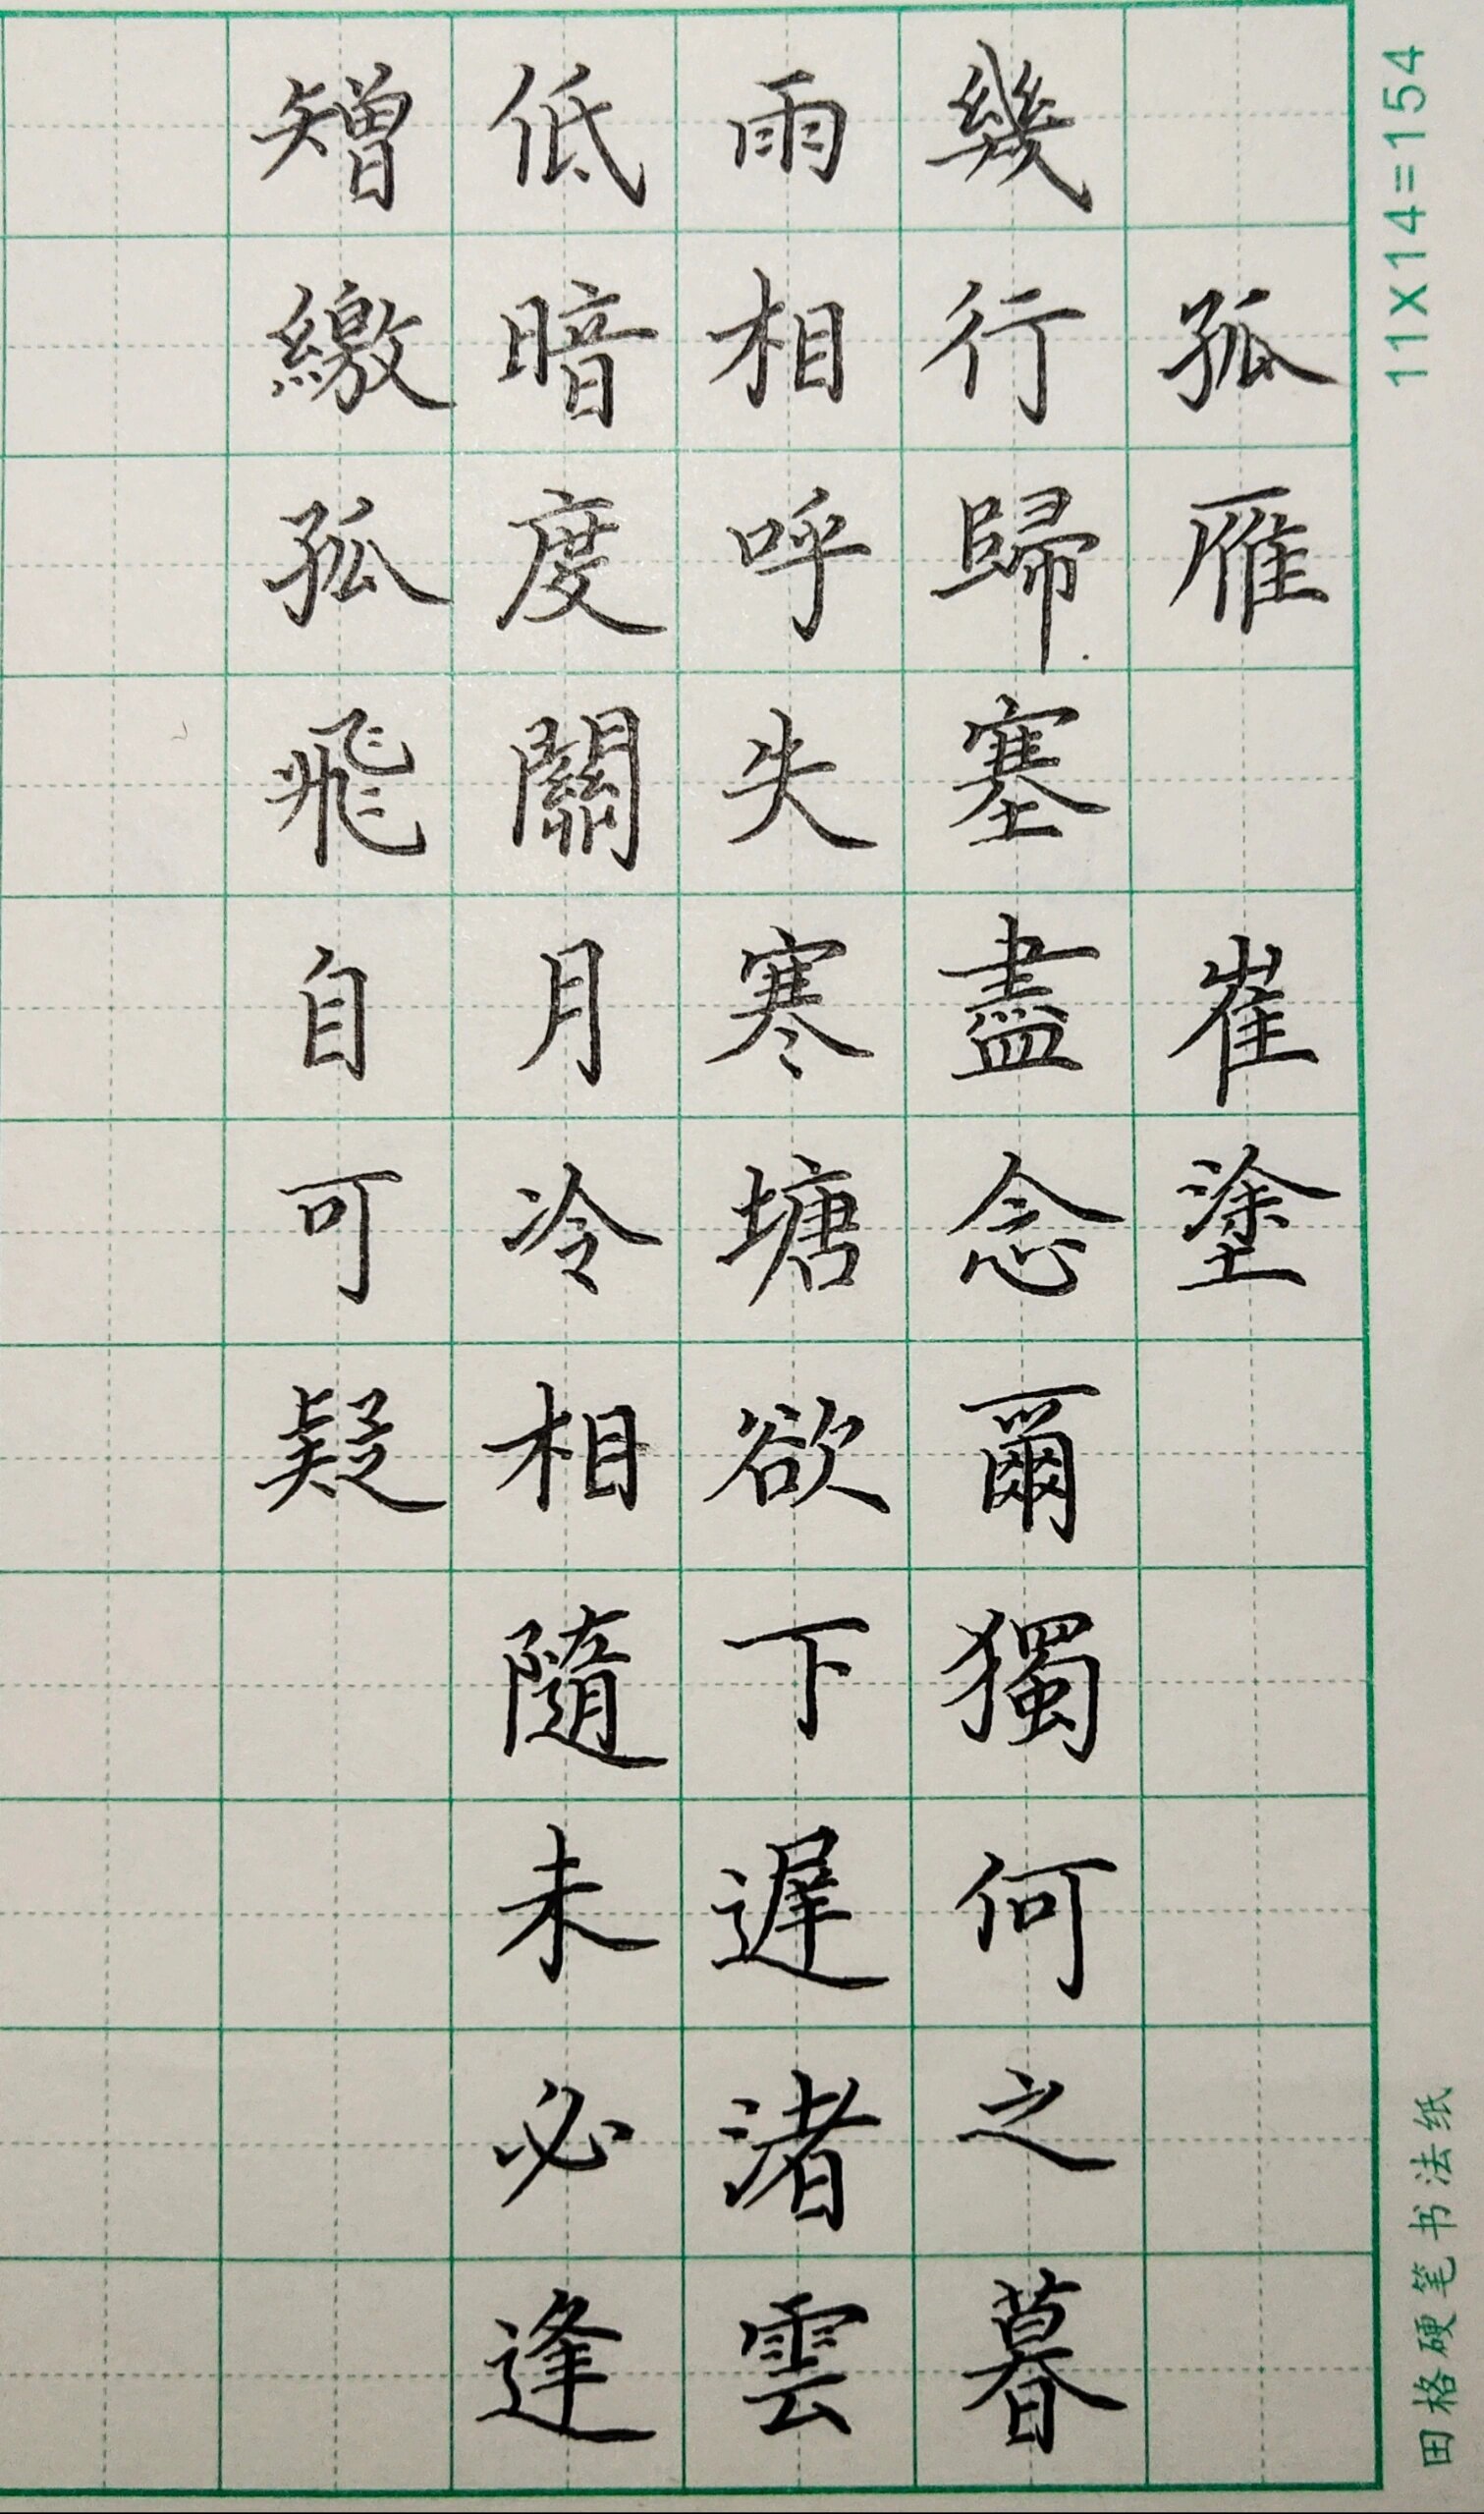 11X14=154
田格硬笔书法纸
孤雁 崔塗
幾行歸塞盡念爾獨何之暮
雨相呼失寒塘欲下遲渚雲
低暗度關月冷相隨未必逢
矰繳孤飛自可疑